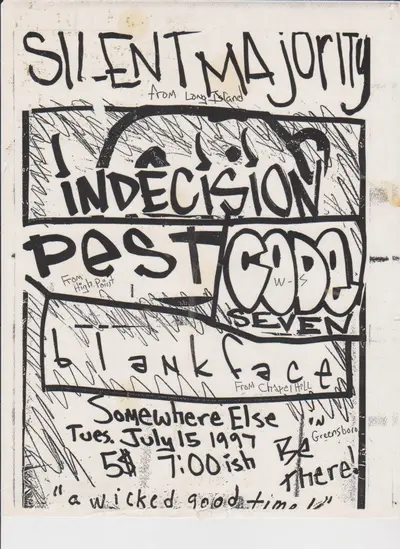 SILENT MAJORITY
from Long Island
INDECISION
PEST
From High Point
CODE
W-S
SEVEN
blankface
From Chapel Hill
Somewhere Else
Tues. July 15 1997
5$ 7:00ish
"IN Greensboro"
Be there!
"a wicked good time!"